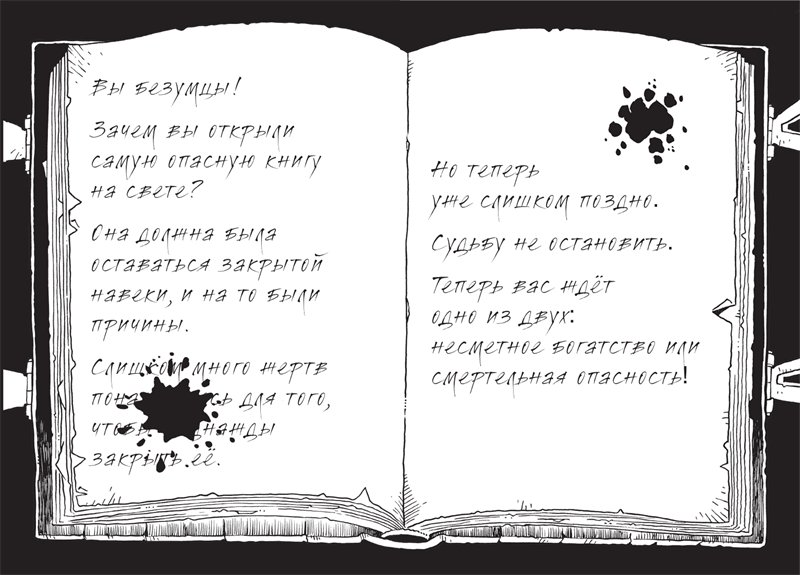 Вы безумцы!
Зачем вы открыли
самую опасную книгу
на свете?
Она должна была
оставаться закрытой
навеки, и на то были
причины.
Слишком много жертв
для того,
чтобы однажды
закрыть её.
Но теперь
уже слишком поздно.
Судьбу не остановить.
Теперь вас ждёт
одно из двух:
несметное богатство или
смертельная опасность!